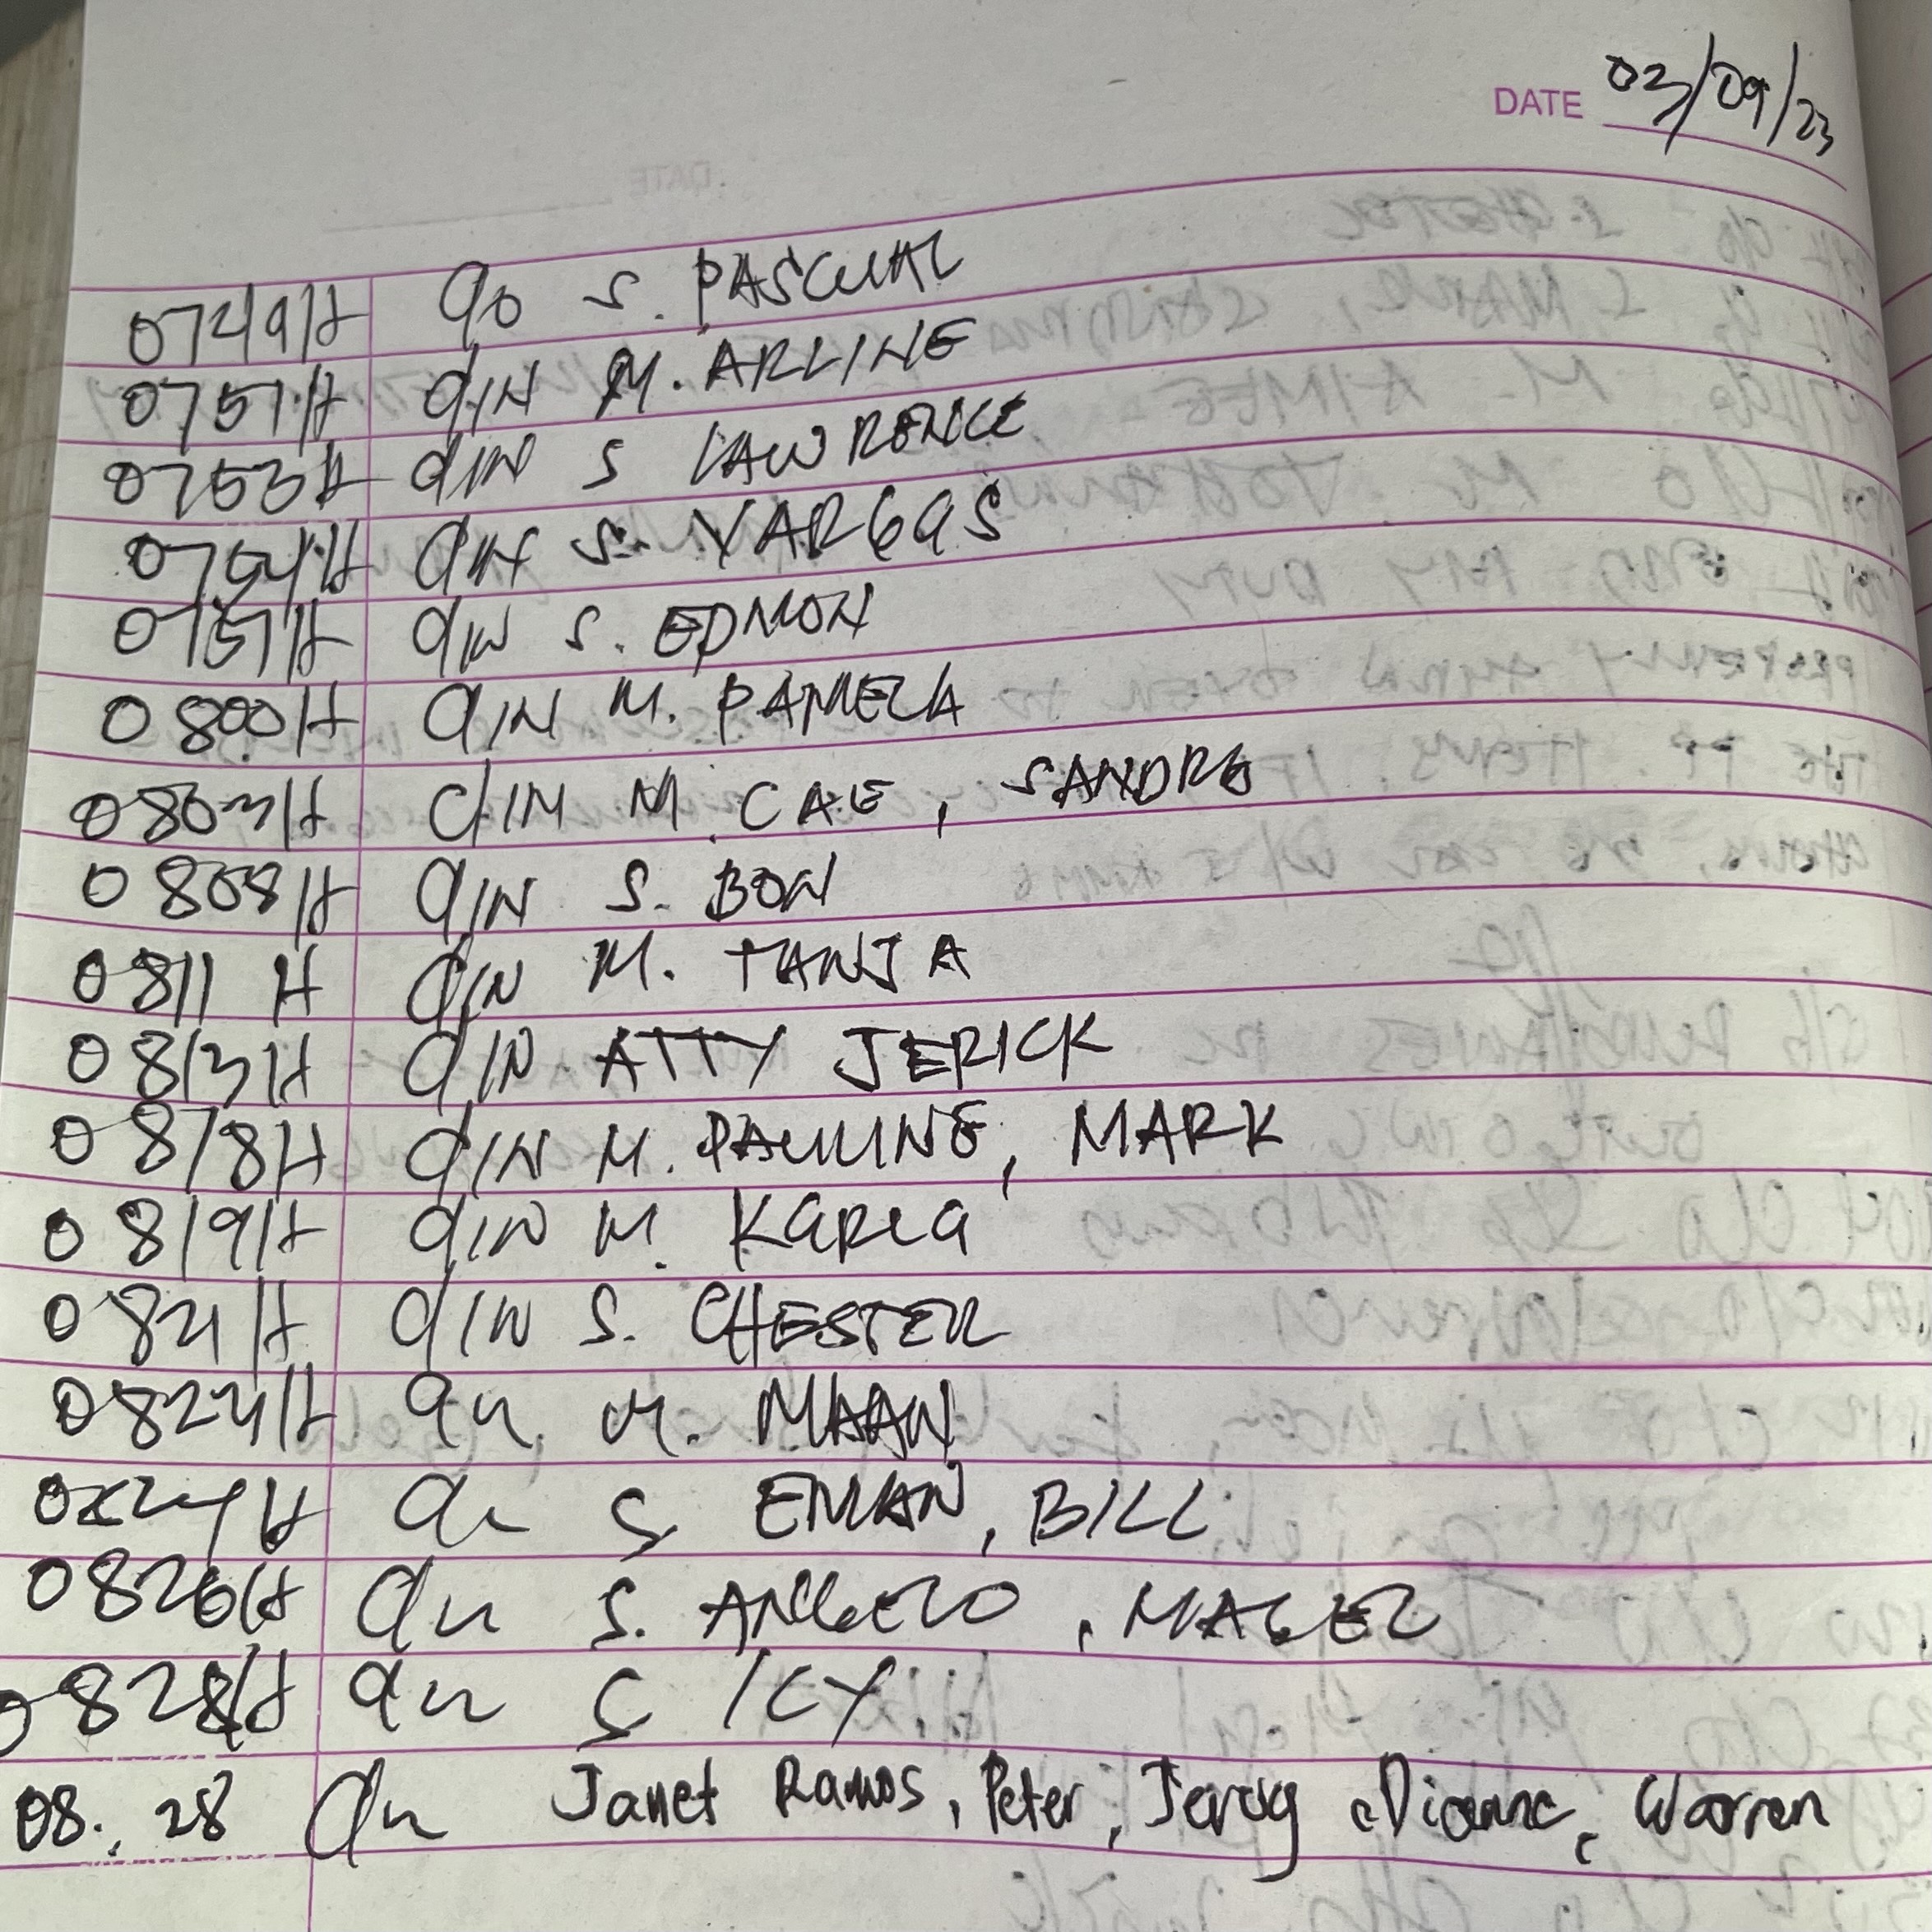 DATE 03/09/23
0749H C/O S. PASCUAL
0751H C/IN M. ARLINE
0753H C/IN S LAWRENCE
0754H C/IN S. VARGAS
0757H C/IN S. EDMON
0800H C/IN M. PAMELA
0803H C/IN M. CAE, SANDRA
0808H C/IN S. BON
0811 H C/IN M. TANJA
0813H C/IN ATTY JERICK
0818H C/IN M. PAULINE, MARK
0819H C/IN M. KARLA
0821H C/IN S. CHESTER
0824H M. MAAN
S EMAN, BILL
0826H S. ANGELO, MABEL
0828H S ICY
08:28 Janet Ramos, Peter, Dianne, Warren